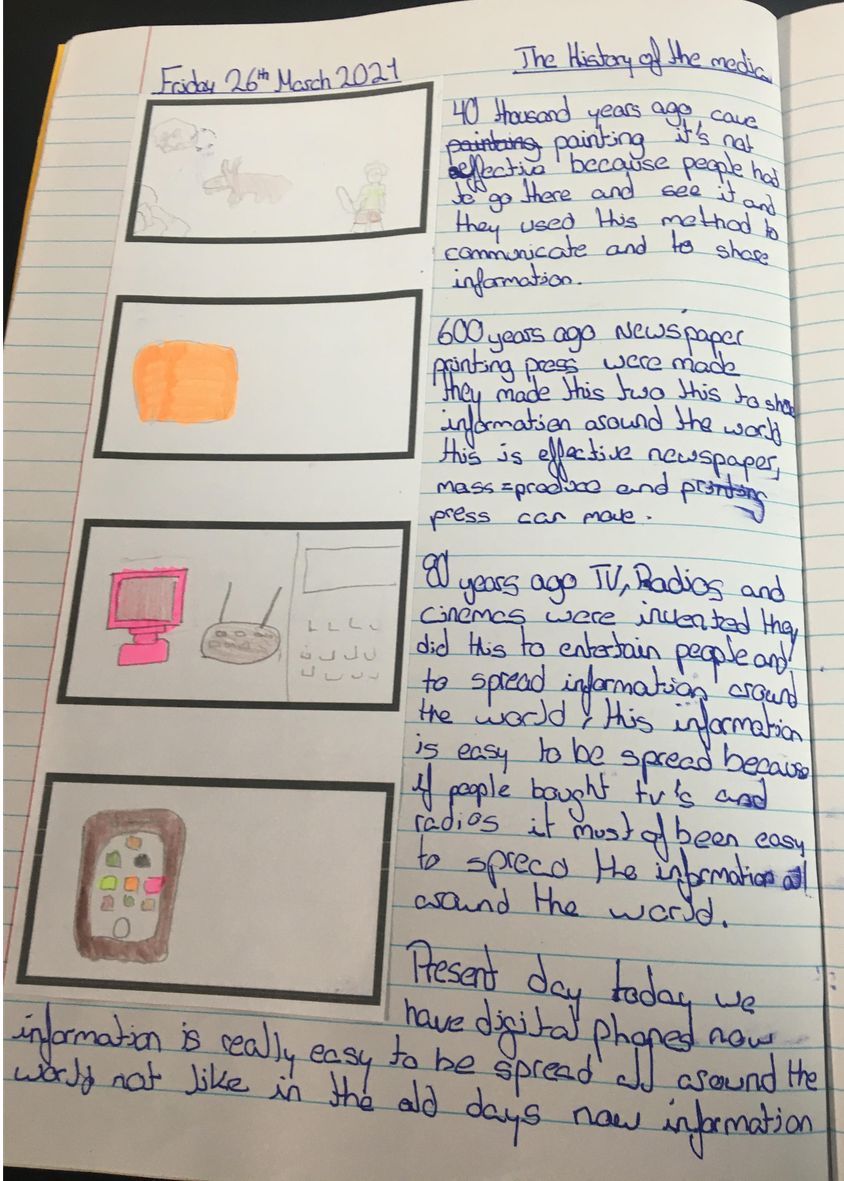 Friday 26th March 2021
The History of the media
40 thousand years ago cave
painting painting it's not
effective because people had
to go there and see it and
they used this method to
communicate and to share
information.
600 years ago Newspaper
printing press were made
they made this two this to share
information around the world
this is effective newspaper,
mass=produce and printing
press can move.
80 years ago TV, Radios and
cinemas were invented they
did this to entertain people and
to spread information around
the world, this information
is easy to be spread because
if people bought tv's and
radios it must of been easy
to spread the information all
around the world.
Present day today we
have digital phones now
information is really easy to be spread all around the
world not like in the old days now information